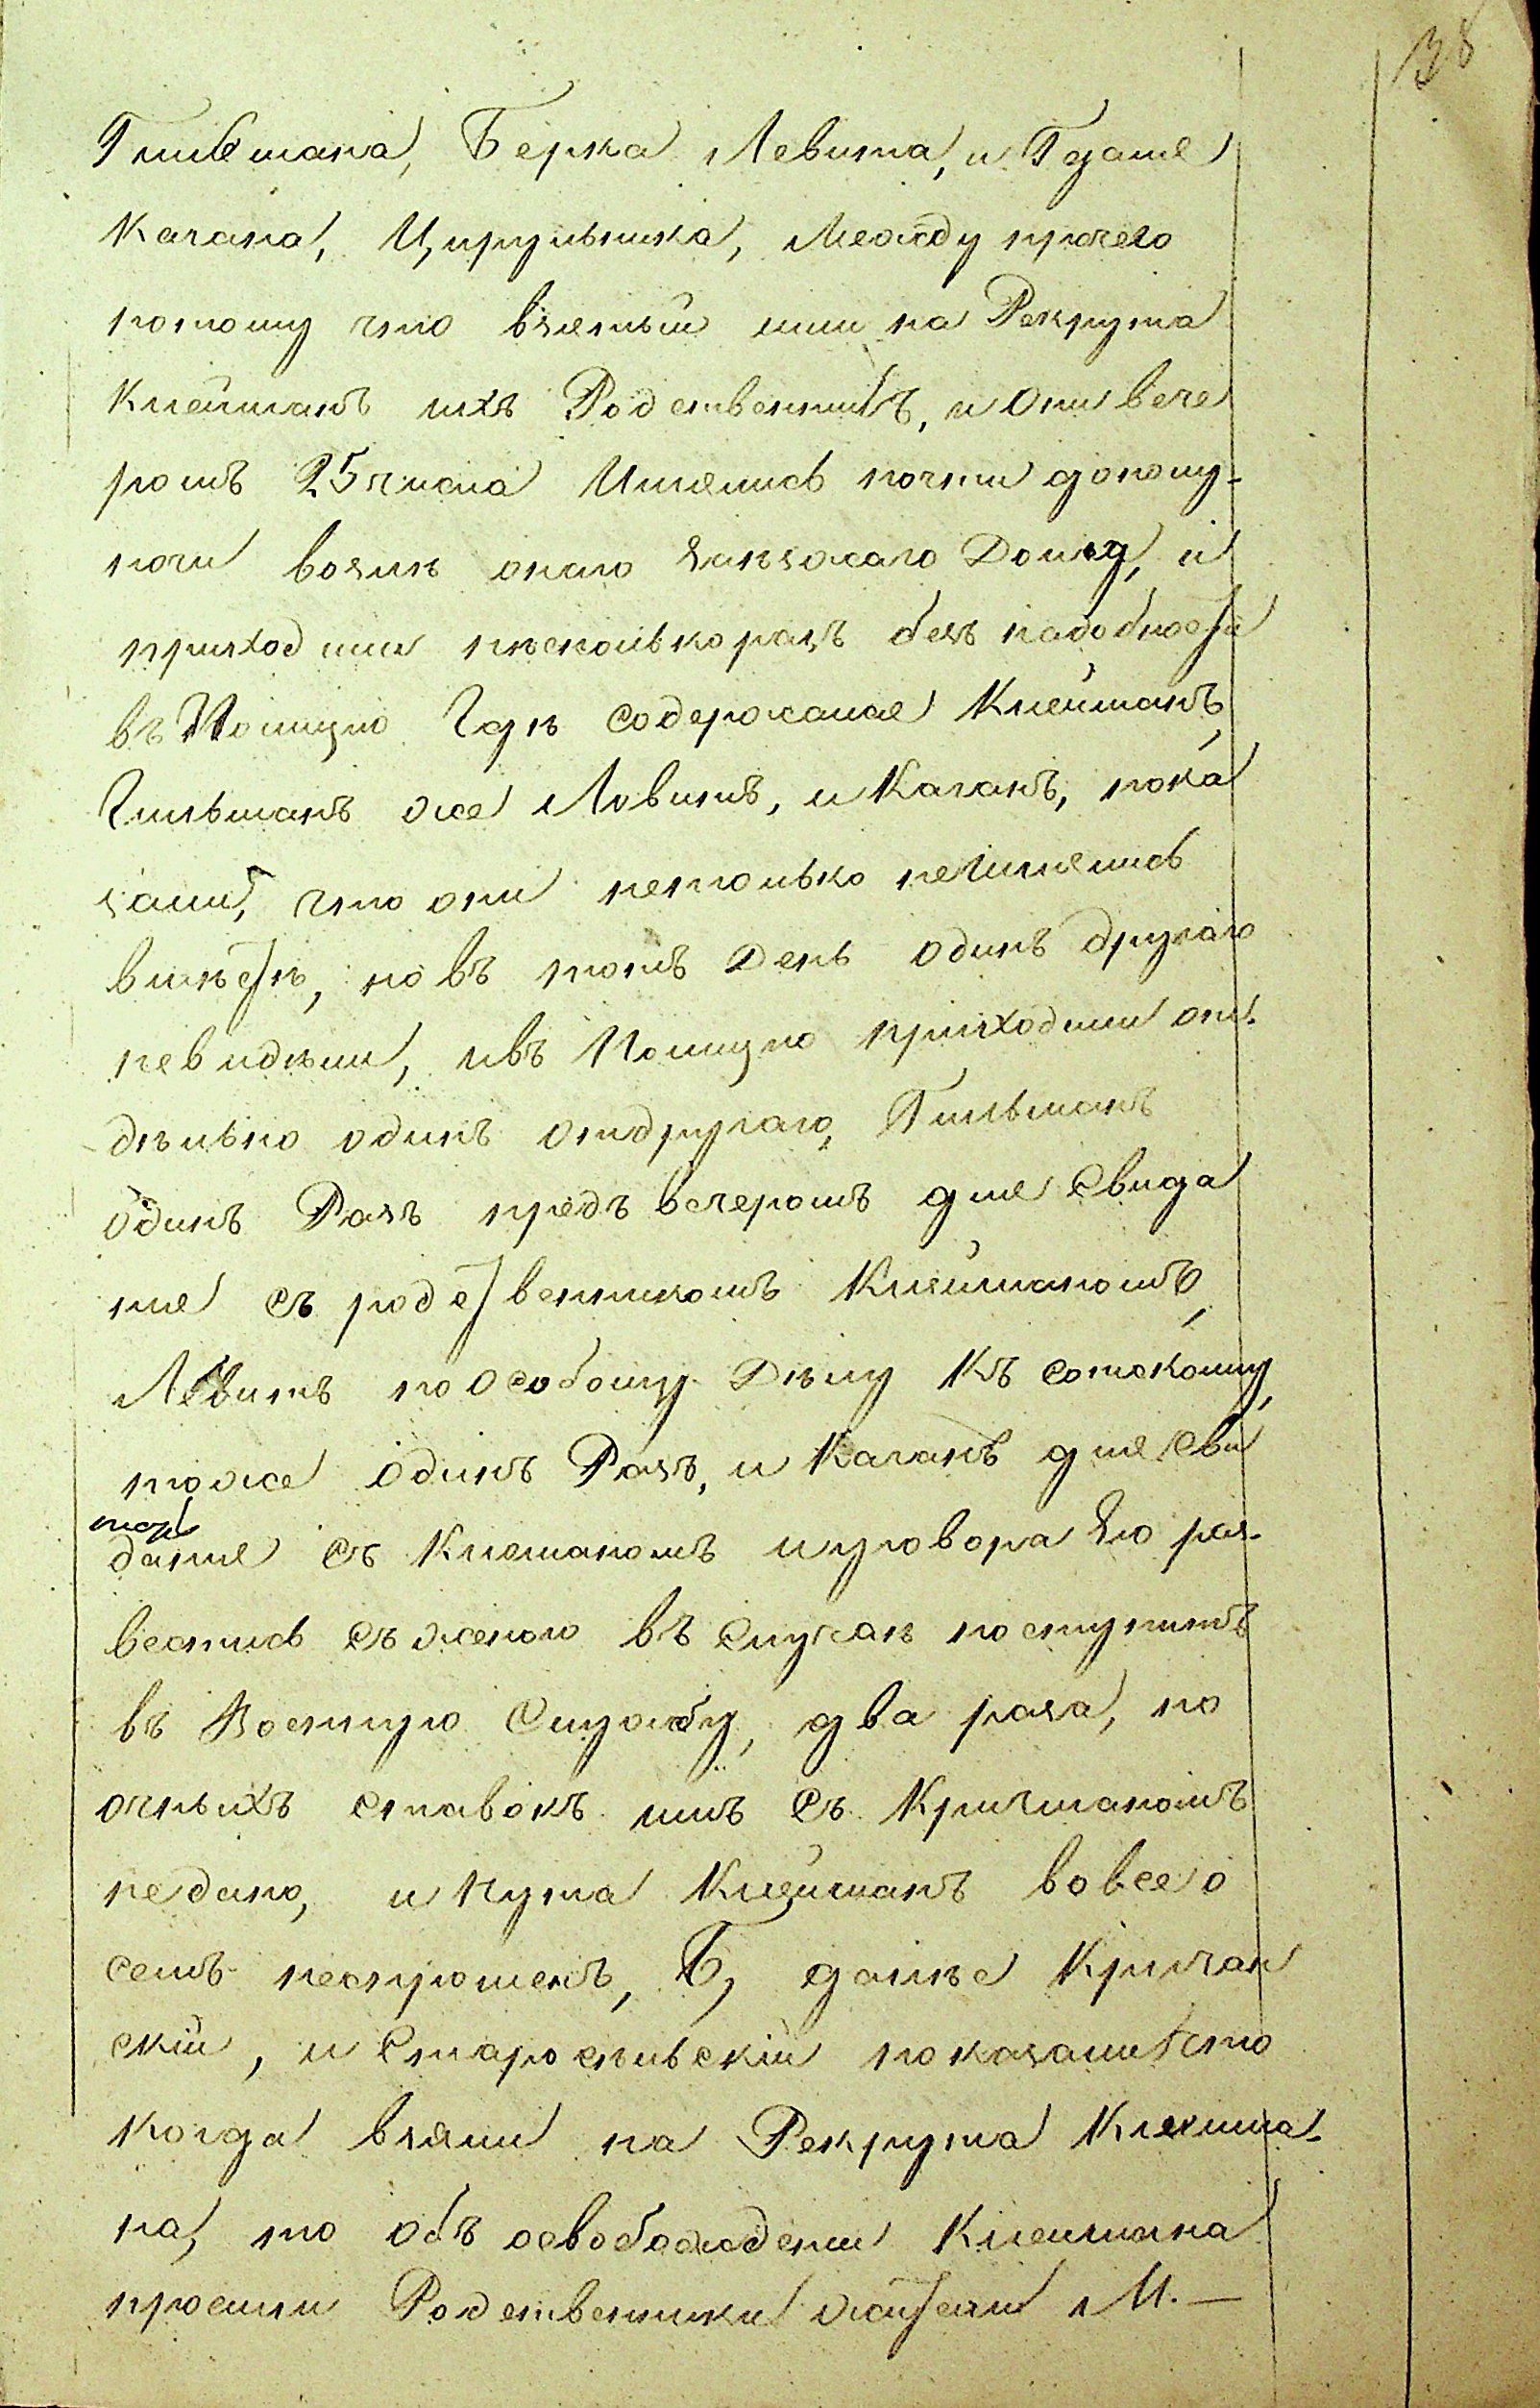 38
Гильмана, Берка Левита, и Гдаля
Кагана, Цирульника, Между прочего
потому что взятый ими на Рекрута
Клейманъ ихъ Родственникъ, и Они вече
ромъ 25 числа Шлялись почти дополу-
ночи возлѣ онаго заѣзжаго Дома, и
приходили нѣсколько разъ безъ надобности
въ Полицiю Гдѣ содержался Клейманъ,
Гильманъ же Левитъ, и Каганъ, пока
зали, что они нетолько нешлялись
вмѣстѣ, но въ тотъ День одинъ другаго
невидѣли, ивъ Полицiю приходили от-
дѣльно одинъ отдругаго, Гильманъ
одинъ Разъ предъ вечеромъ для Свида
нiя съ родственникомъ Клейманомъ,
Левитъ по Особому Дѣлу Къ сотскому,
тоже одинъ Разъ, и Каганъ для сви
данiя съ Клеманомъ иуговора Его раз-
вестись съ женою въ Случаѣ поступитъ
въ Военную Службу, два раза, но
очныхъ ставокъ имъ Съ Кричманомъ
недано, и Нута Клейманъ вовсе о
семъ неспрошенъ, Б, далѣе Кричев
скiй, и Старосельскiй показали что
Когда взяли на Рекрута Клейма-
на, то объ освобожденiи Клеймана
просили Родственники жители М.—